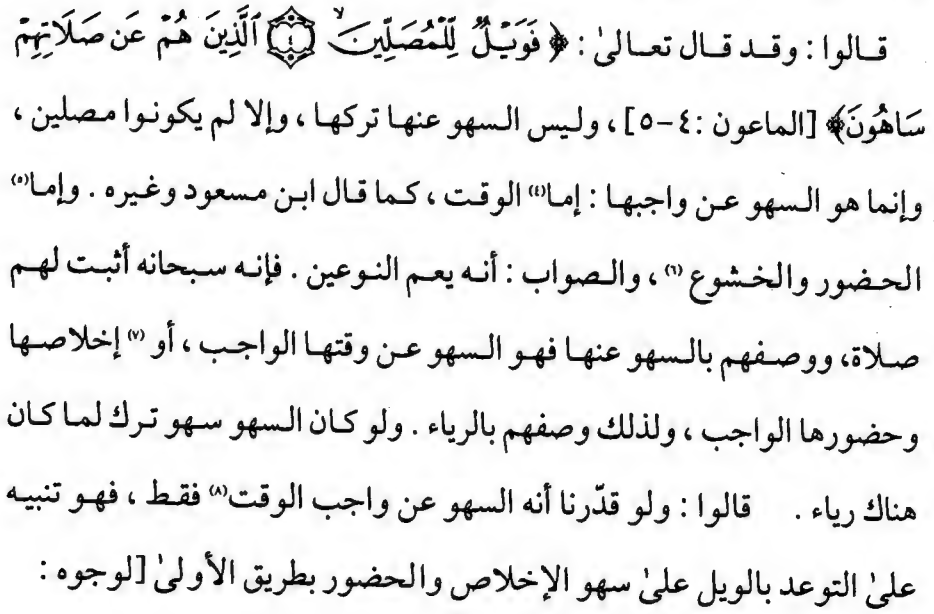 قالوا : وقد قال تعالىٰ : ﴿ فَوَيْلٌ لِّلْمُصَلِّينَ ۙ ٤ ٱلَّذِينَ هُمْ عَن صَلَاتِهِمْ
سَاهُونَ﴾ [الماعون :٤-٥] ، وليس السهو عنها تركها ، وإلا لم يكونوا مصلين ،
وإنما هو السهو عن واجبها : إما(٤) الوقت ، كما قال ابن مسعود وغيره . وإما(٥)
الحضور والخشوع(٦) ، والصواب : أنه يعم النوعين . فإنه سبحانه أثبت لهم
صلاة، ووصفهم بالسهو عنها فهو السهو عن وقتها الواجب ، أو(٧) إخلاصها
وحضورها الواجب ، ولذلك وصفهم بالرياء . ولو كان السهو سهو ترك لما كان
هناك رياء . قالوا : ولو قدّرنا أنه السهو عن واجب الوقت(٨) فقط ، فهو تنبيه
علىٰ التوعد بالويل علىٰ سهو الإخلاص والحضور بطريق الأولىٰ [لوجوه :